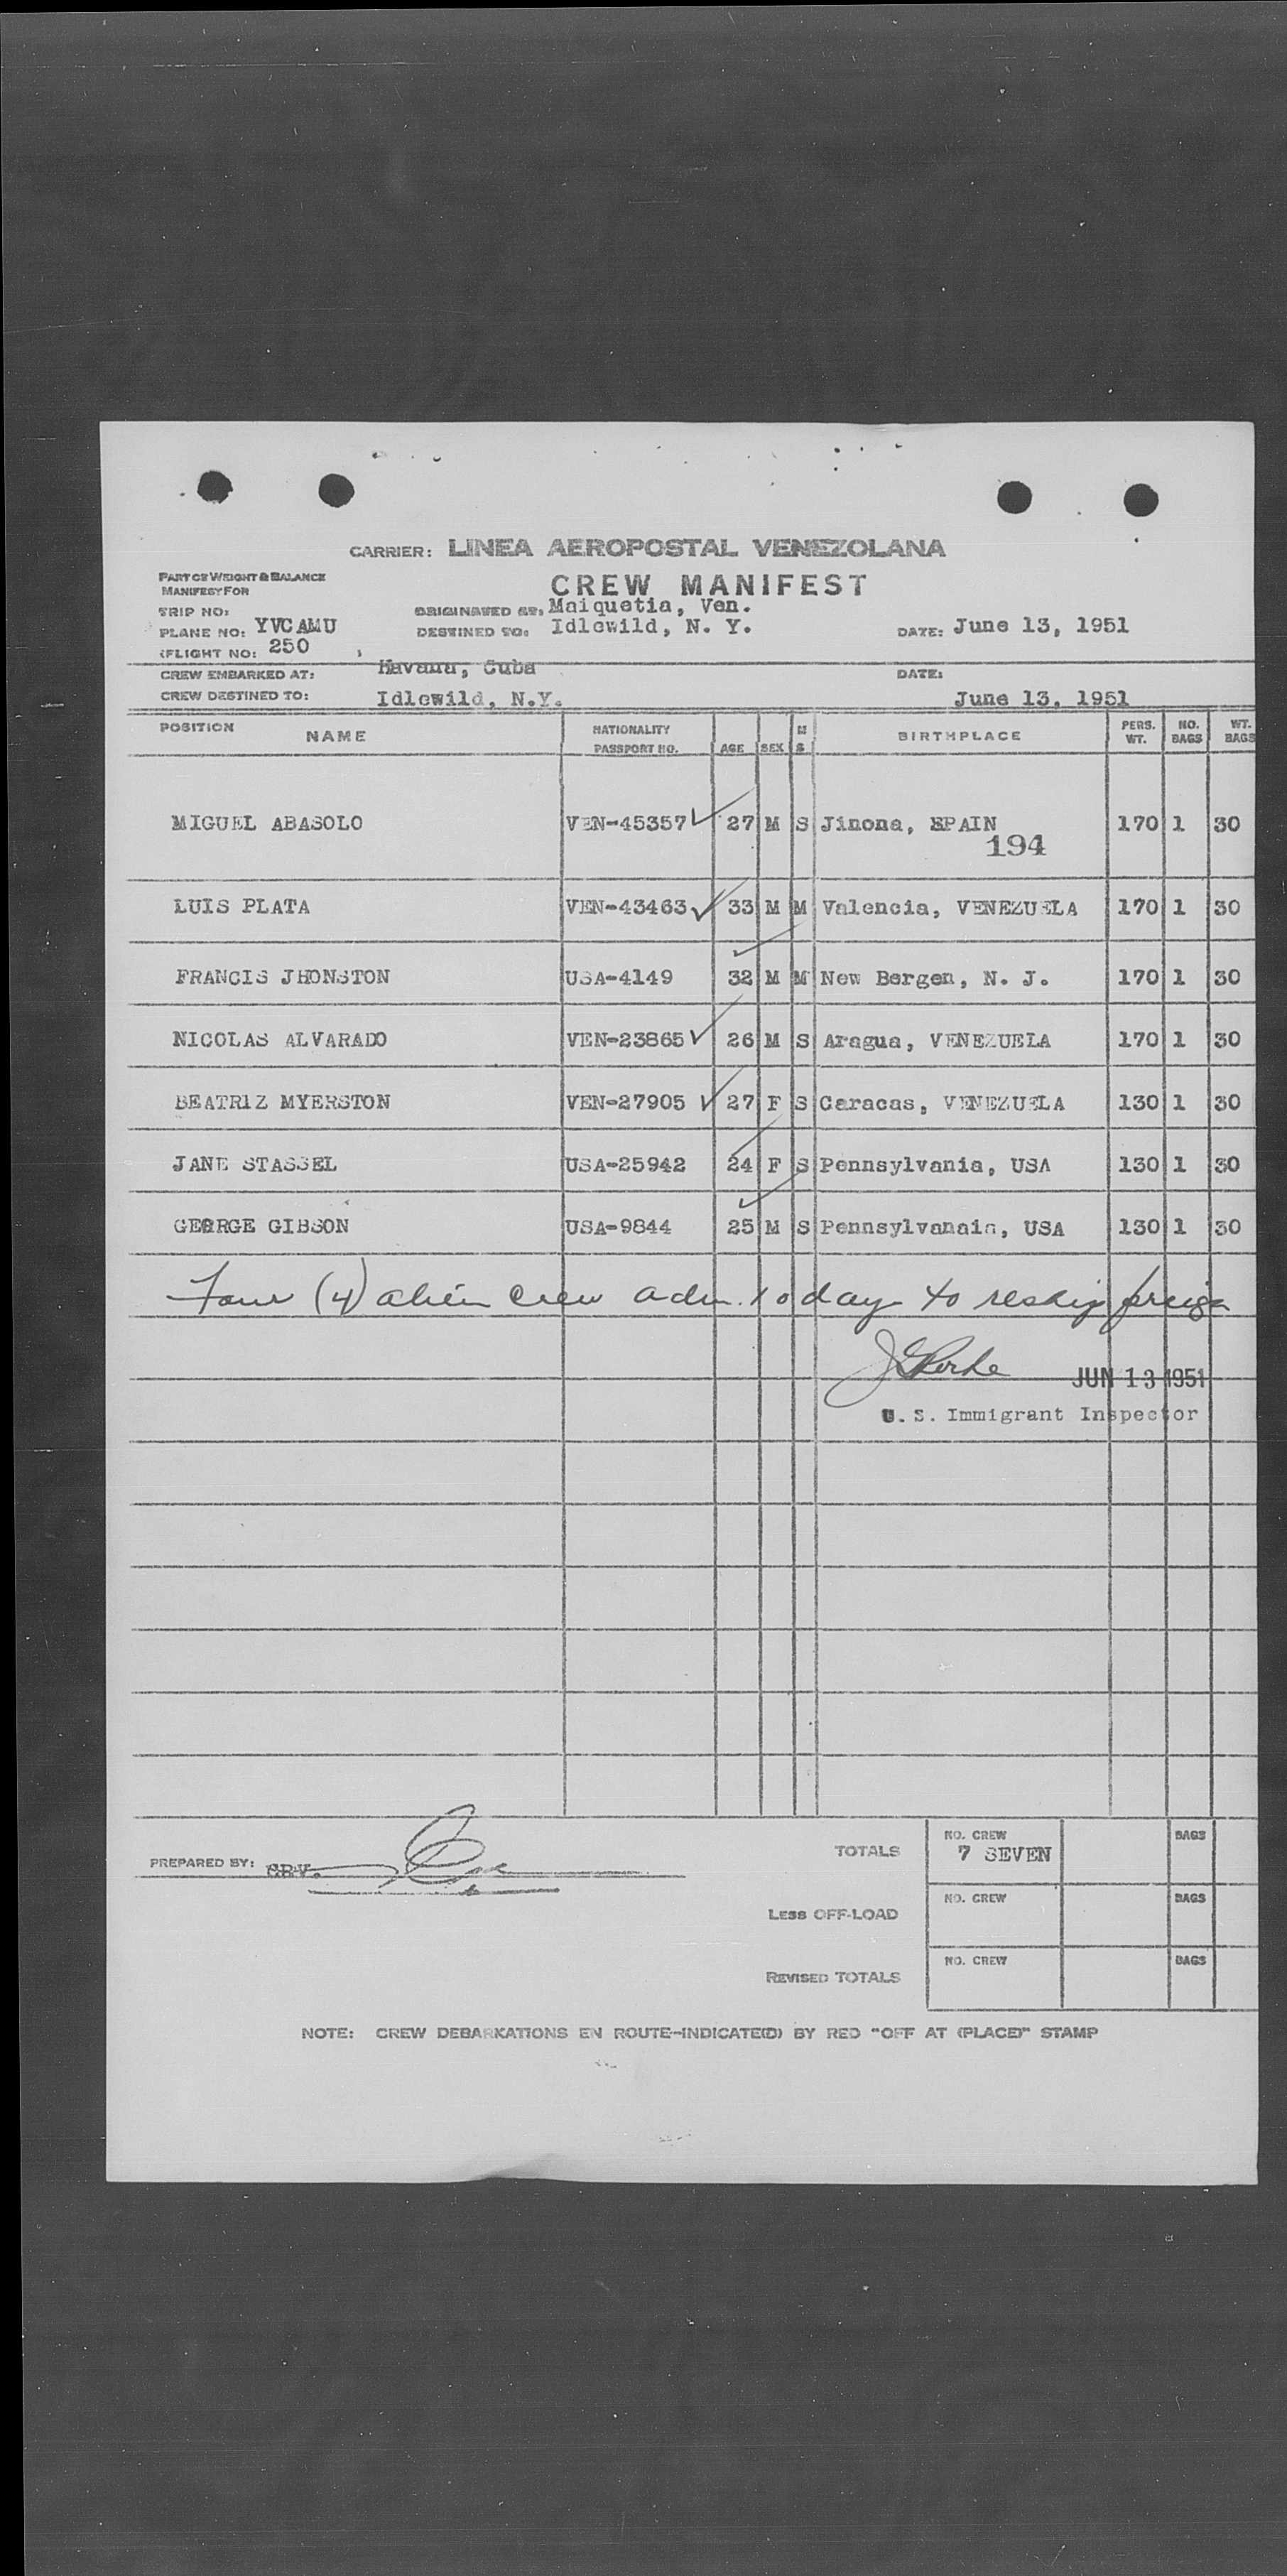 CARRIER: LINEA AEROPOSTAL VENEZOLANA
PART OF WEIGHT & BALANCE
MANIFEST FOR
CREW MANIFEST
TRIP NO:
ORIGINATED AT: Maiquetia, Ven.
PLANE NO: YVCAMU
DESTINED TO: Idlewild, N. Y.
DATE: June 13, 1951
(FLIGHT NO: 250
CREW EMBARKED AT: Havana, Cuba
DATE:
CREW DESTINED TO: Idlewild, N.Y. June 13, 1951
POSITION NAME NATIONALITY PASSPORT NO. AGE SEX M S BIRTHPLACE PERS. WT. NO. BAGS WT. BAGS
MIGUEL ABASOLO VEN-45357 27 M S Jinona, SPAIN 170 1 30
194
LUIS PLATA VEN-43463 33 M M Valencia, VENEZUELA 170 1 30
FRANCIS JHONSTON USA-4149 32 M M New Bergen, N. J. 170 1 30
NICOLAS ALVARADO VEN-23865 26 M S Aragua, VENEZUELA 170 1 30
BEATRIZ MYERSTON VEN-27905 27 F S Caracas, VENEZUELA 130 1 30
JANE STASSEL USA-25942 24 F S Pennsylvania, USA 130 1 30
GEORGE GIBSON USA-9844 25 M S Pennsylvanaia, USA 130 1 30
Four (4) alien crew adm. today to reship foreign
JUN 13 1951
U. S. Immigrant Inspector
PREPARED BY:
TOTALS NO. CREW 7 SEVEN BAGS
Less OFF-LOAD NO. CREW BAGS
REVISED TOTALS NO. CREW BAGS
NOTE: CREW DEBARKATIONS EN ROUTE-INDICATE(D) BY RED "OFF AT (PLACE)" STAMP